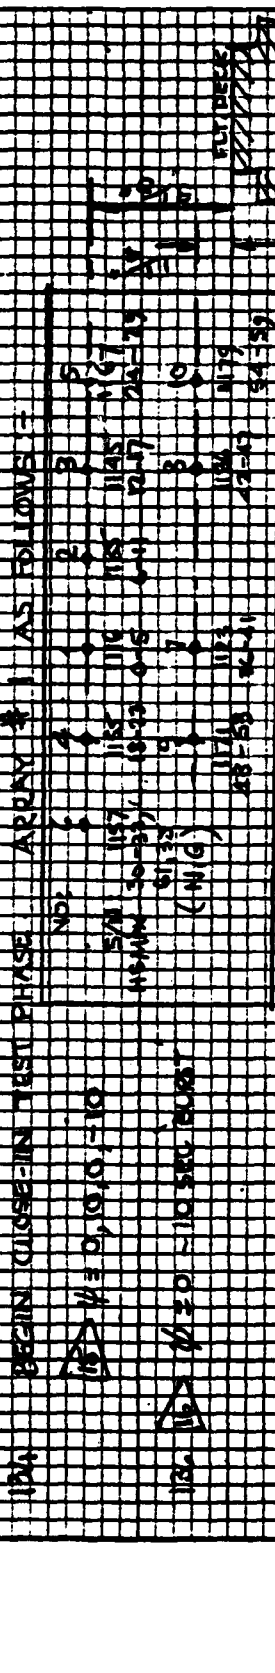 134 BEGIN CLOSE-IN TEST PHASE ARRAY # 1 AS FOLLOWS :-
15 ψ = 0, 10, 0, -10
134 16 ψ = 0 ~ 10 SEC BURST
NO. 6 4 1 2 3 5
S/N 1157 1155 1116 1135 1145 1167
30-35, 18-23 0-5 6-11 12-17 24-29
61,32
(NG)
9 7 8 10
1171 1123 1136 1179
48-53 36-41 42-47 54-59
FLT DECK